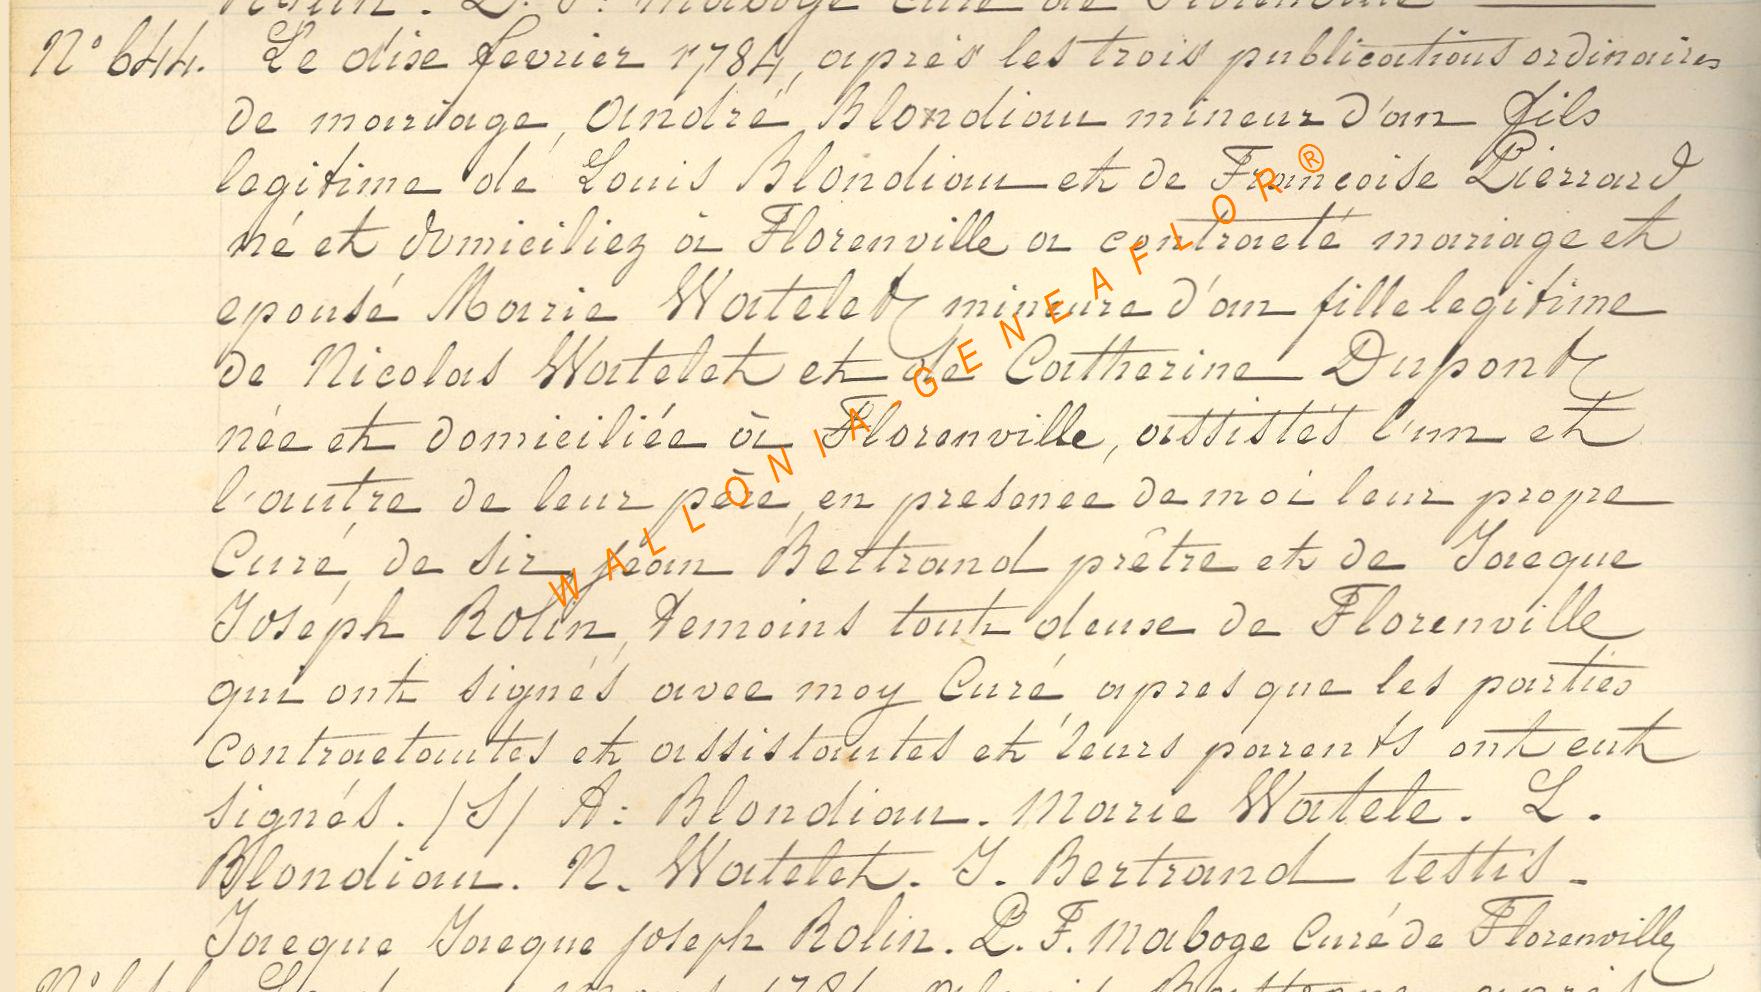 N° 644. Le dixe fevrier 1784, après les trois publications ordinaires
de mariage, André Blondiau mineur d'an fils
legitime de Louis Blondiau et de Françoise Pierrard
né et domiciliez à Florenville a contracté mariage et
epousé Marie Watelet mineure d'an fille legitime
de Nicolas Watelet et de Catherine Dupont
née et domiciliée à Florenville, assistés l'un et
l'autre de leur père, en presence de moi leur propre
Curé, de sir jéan Bertrand prêtre et de Jacque
Joséph Rolin, temoins tout deuxe de Florenville
qui ont signés avec moy Curé apres que les parties
contractantes et assistantes et leurs parents ont eut
signés. /S/ A: Blondiau. Marie Watele. L.
Blondiau. N. Watelet. J. Bertrand testis -
Jacque Jacque joseph Rolin. P. F. Maboge Curé de Florenville
WALLONIA-GENEAFLOR®